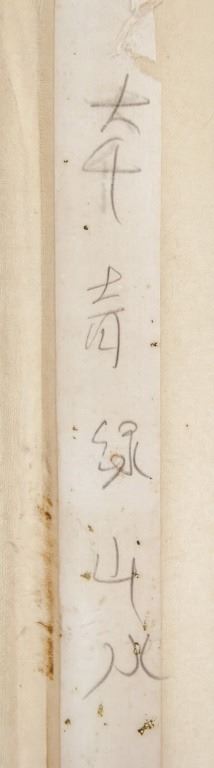 大千青綠山水